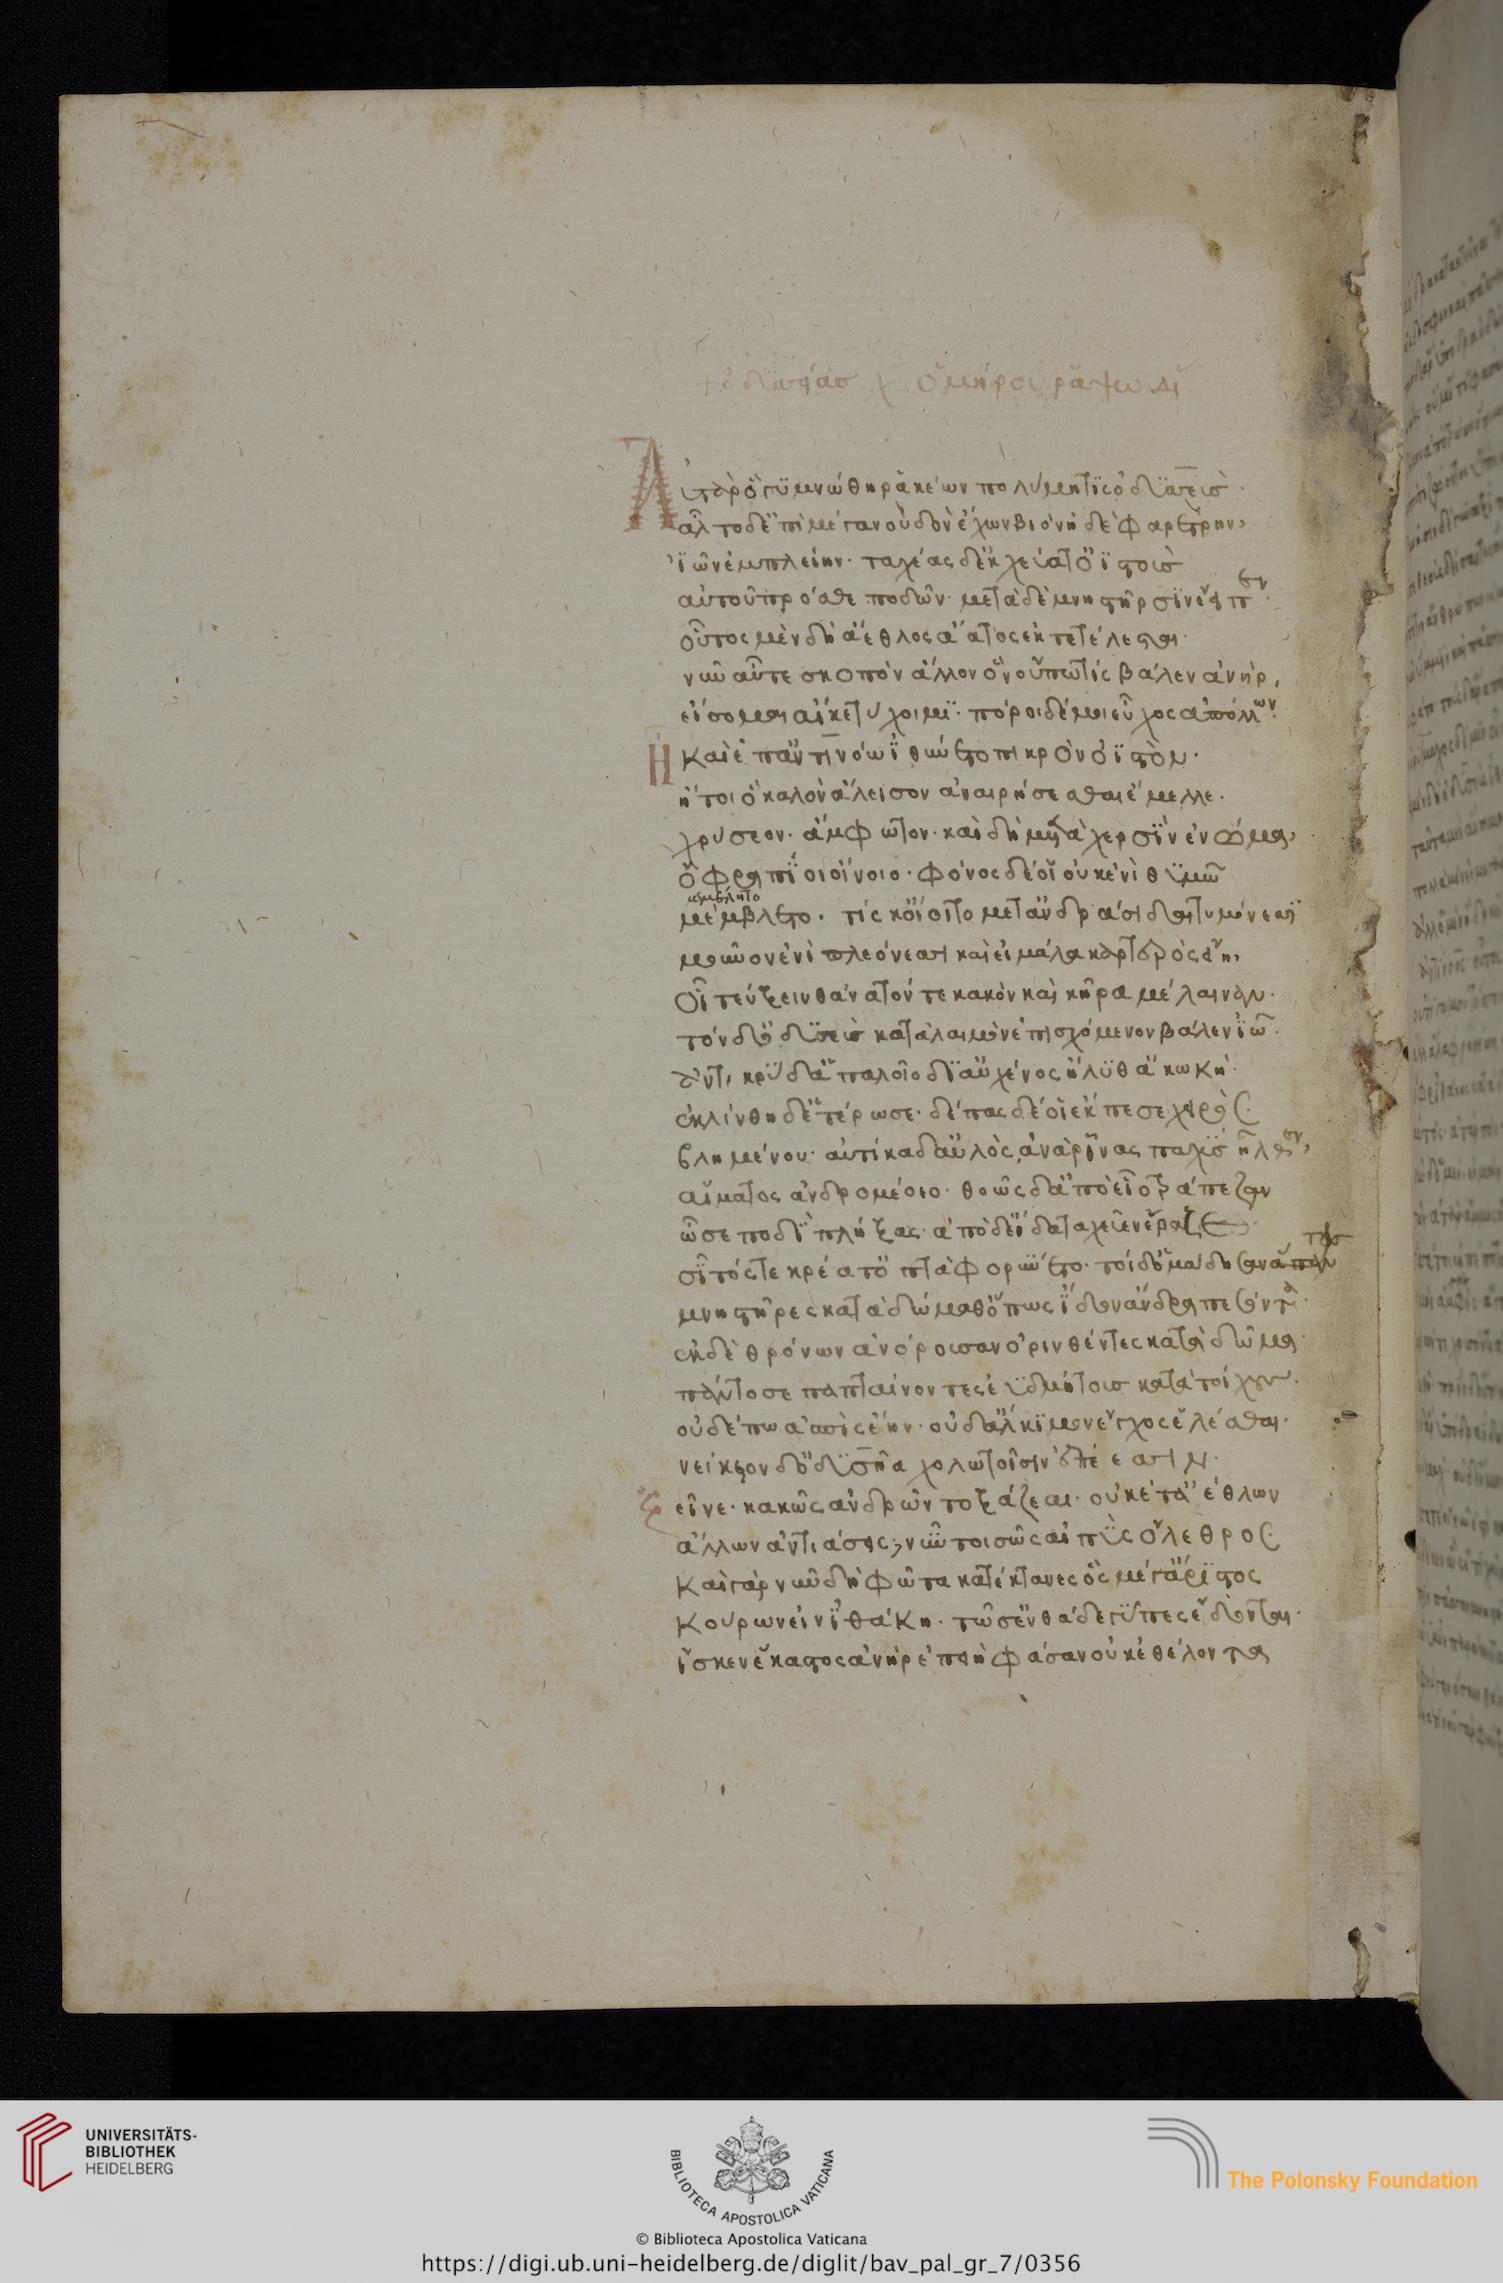 ὀδυσσείας χ ὁμήρου ῥαψωδί
Αὐτὰρ ὁ γυμνώθη ῥακέων πολύμητις ὀδυσσεὺς·
ἆλτο δ' ἐπὶ μέγαν οὐδὸν ἔχων βιὸν ἠδὲ φαρέτρην,
ἰῶν ἐμπλείην· ταχέας δ' ἐκχεύατ' ὀϊστοὺς
αὐτοῦ πρόσθε ποδῶν· μετὰ δὲ μνηστῆρσιν ἔειπεν·
οὗτος μὲν δὴ ἄεθλος ἀάατος ἐκτετέλεσται·
νῦν αὖτε σκοπὸν ἄλλον ὃν οὔπω τίς βάλεν ἀνήρ,
εἴσομαι αἴκε τύχοιμι· πόροι δέ μοι εὖχος ἀπόλλων·
Ἦ καὶ ἐπ' ἀντινόω ἰθύνετο πικρὸν ὀϊστὸν·
ἤτοι ὁ καλὸν ἄλεισον ἀναιρήσεσθαι ἔμελλε·
χρύσεον· ἄμφωτον· καὶ δὴ μετὰ χερσὶν ἐνώμα,
ὄφρα πίοι οἴνοιο· φόνος δέ οἱ οὐκ ἐνὶ θυμῶ
μεμβλητο
μέμβλετο· τίς κ' οἴοιτο μετ' ἀνδράσι δαιτυμόνεσσι
μοῦνον ἐνὶ πλεόνεσσι καὶ εἰ μάλα καρτερὸς εἴη,
οἷ τεύξειν θάνατόν τε κακὸν καὶ κῆρα μέλαιναν·
τόνδ' ὀδυσεὺς κατὰ λαιμὸν ἐπισχόμενον βάλεν ἰῶ·
ἀντικρὺ δ' ἁπαλοῖο δι' αὐχένος ἤλυθ' ἀκωκή·
ἐκλίνθη δ' ἑτέρωσε· δέπας δέ οἱ ἔκπεσε χειρὸς·
βλημένου· αὐτίκα δ' αὐλὸς ἀνὰ ῥῖνας παχὺς ἦλθεν,
αἵματος ἀνδρομέοιο· θοῶς δ' ἀπὸ εἷο τράπεζαν
ὦσε ποδὶ πλήξας· ἀπὸ δ' εἴδατα χεῦεν ἔραζε·
σῖτός τε κρέα τ' ὀπτὰ φορύνετο· τοὶ δ' ὁμάδησαν ἅπαν
τες
μνηστῆρες κατὰ δώμαθ' ὅπως ἴδον ἄνδρα πεσόντα·
ἐκ δὲ θρόνων ἀνόρουσαν ὀρινθέντες κατὰ δῶμα·
πάντοσε παπταίνοντες ἐυδμήτους κατὰ τοίχους·
οὐδέ πω ἀσπὶς ἔην· οὐδ' ἄλκιμον ἔγχος ἑλέσθαι·
νείκεον δ' ὀδυσῆα χολωτοῖσιν ἐπέεσσιν·
ξεῖνε· κακῶς ἀνδρῶν τοξάζεαι· οὐκέτ' ἀέθλων
ἄλλων ἀντιάσεις, νῦν τοι σῶς αἰπὺς ὄλεθρος
καὶ γὰρ νῦν δὴ φῶτα κατέκτανες ὃς μέγ' ἄριστος
κούρων εἰν ἰθάκη· τῶ σ' ἐνθάδε γῦπες ἔδονται·
ἴσκεν ἕκαστος ἀνὴρ ἐπειὴ φάσαν οὐκ ἐθέλοντα
UNIVERSITÄTS-
BIBLIOTHEK
HEIDELBERG
BIBLIOTECA APOSTOLICA VATICANA
The Polonsky Foundation
© Biblioteca Apostolica Vaticana
https://digi.ub.uni-heidelberg.de/diglit/bav_pal_gr_7/0356